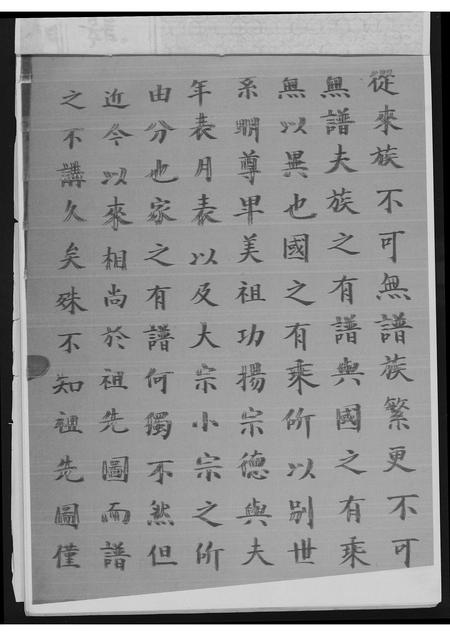 從來族不可無譜族繁更不可
無譜夫族之有譜與國之有乘
無以異也國之有乘所以別世
系明尊卑美祖功揚宗德與夫
年表月表以及大宗小宗之所
由分也家之有譜何獨不然但
近今以來相尚於祖先圖而譜
之不講久矣殊不知祖先圖僅